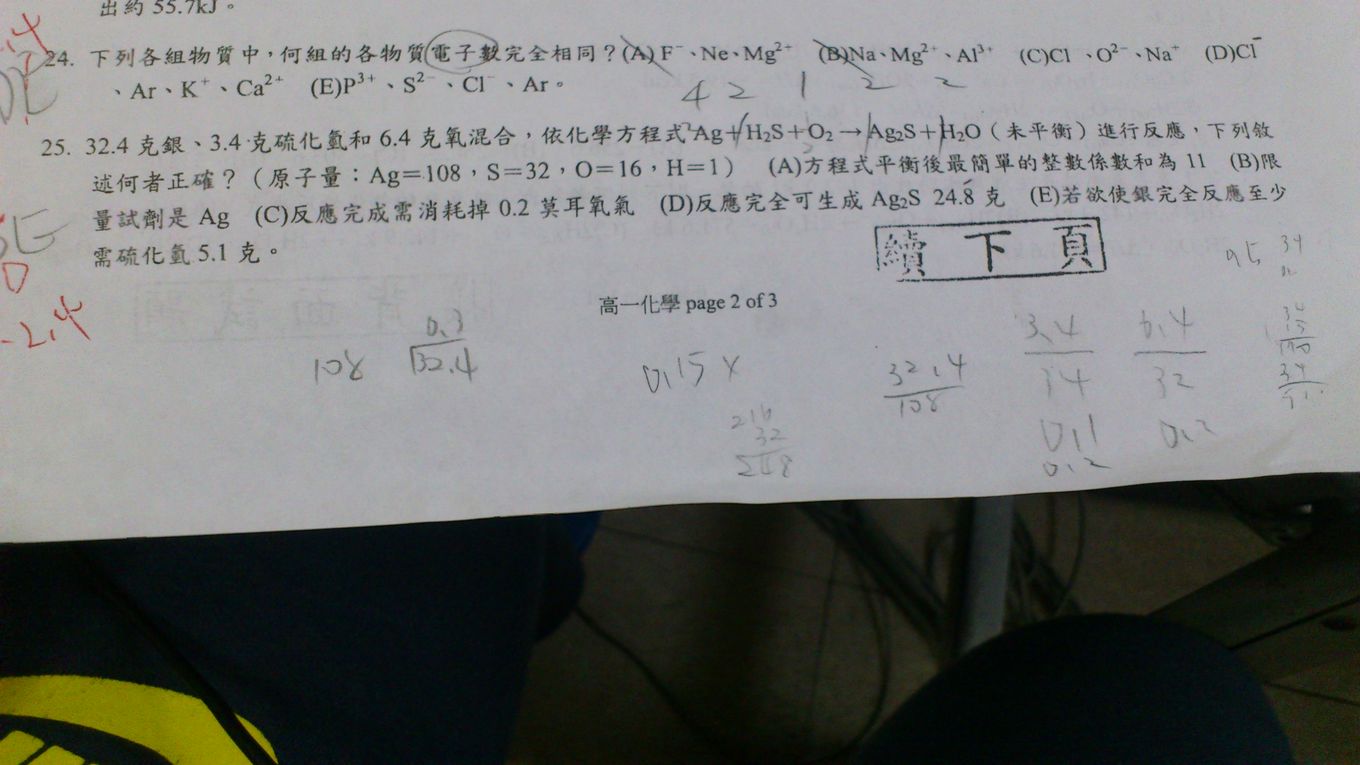 出約 55.7kJ。
24. 下列各組物質中,何組的各物質電子數完全相同?(A) F⁻、Ne、Mg²⁺ (B)Na、Mg²⁺、Al³⁺ (C)Cl⁻、O²⁻、Na⁺ (D)Cl⁻
、Ar、K⁺、Ca²⁺ (E)P³⁺、S²⁻、Cl⁻、Ar。
4 2 1 2 2
25. 32.4 克銀、3.4 克硫化氫和 6.4 克氧混合,依化學方程式 Ag+H₂S+O₂→Ag₂S+H₂O(未平衡)進行反應,下列敘
述何者正確?(原子量:Ag=108,S=32,O=16,H=1) (A)方程式平衡後最簡單的整數係數和為 11 (B)限
量試劑是 Ag (C)反應完成需消耗掉 0.2 莫耳氧氣 (D)反應完全可生成 Ag₂S 24.8 克 (E)若欲使銀完全反應至少
需硫化氫 5.1 克。
續下頁
高一化學 page 2 of 3
-2.4
108
0.3
32.4
0.15 x
216
32
32.4
108
3.4
34
0.1
0.2
6.4
32
0.2
34